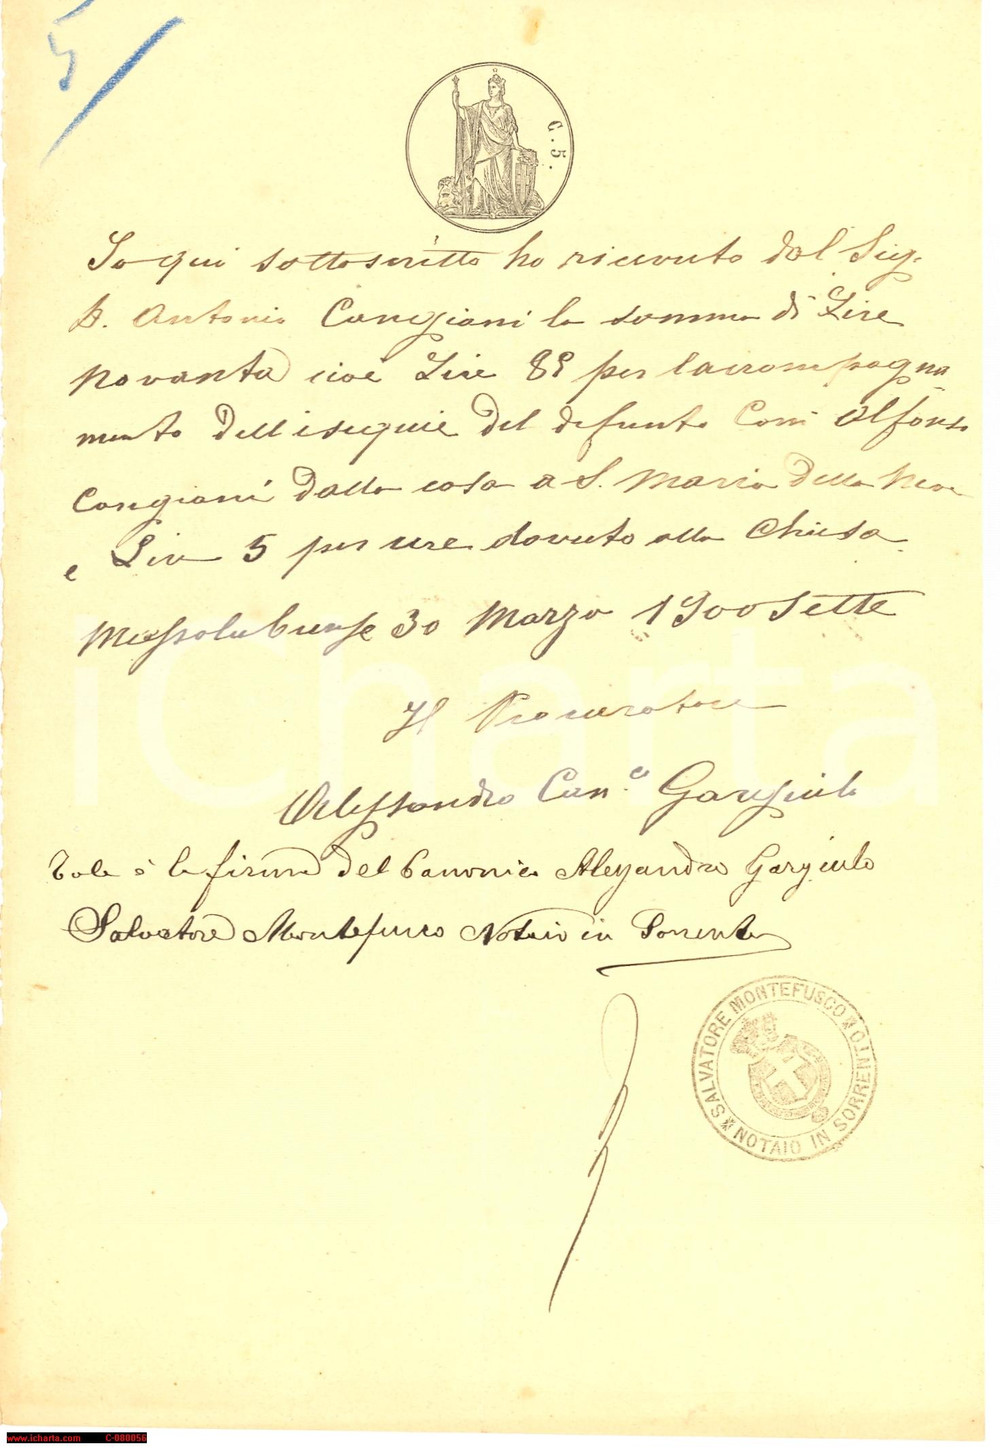 5
C. 5.
Io qui sottoscritto ho ricevuto dal Sig.
D. Antonio Cangiani la somma di Lire
novanta cioè Lire 85 per l'accompagna
mento dell'esequie del defunto Alfonso
Cangiani dalla casa a S. Maria della Neve
e Lire 5 per dovuto alla Chiesa
Massalubrense 30 Marzo 1900sette
Il Procuratore
Alessandro Can.co Gargiulo
Tale è la firma del Canonico Alessandro Gargiulo
Salvatore Montefusco Notaio in Sorrento
SALVATORE MONTEFUSCO
NOTAIO IN SORRENTO
iCharta
www.icharta.com C-080056